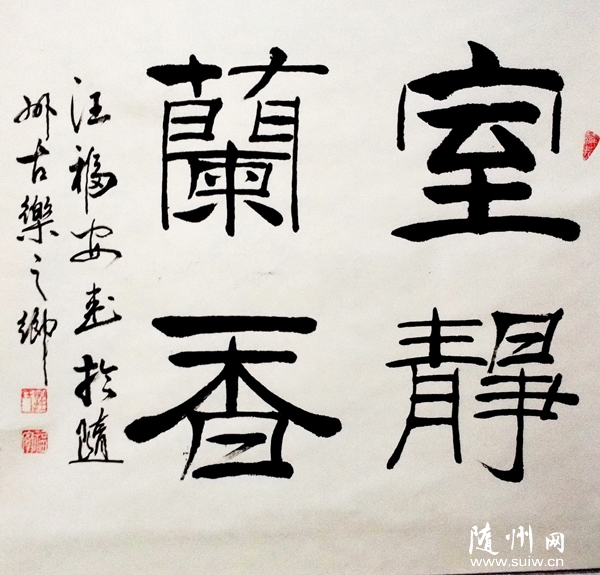 室靜
蘭香
汪福安書於隨
州古樂之鄉
随州网
www.suiw.cn